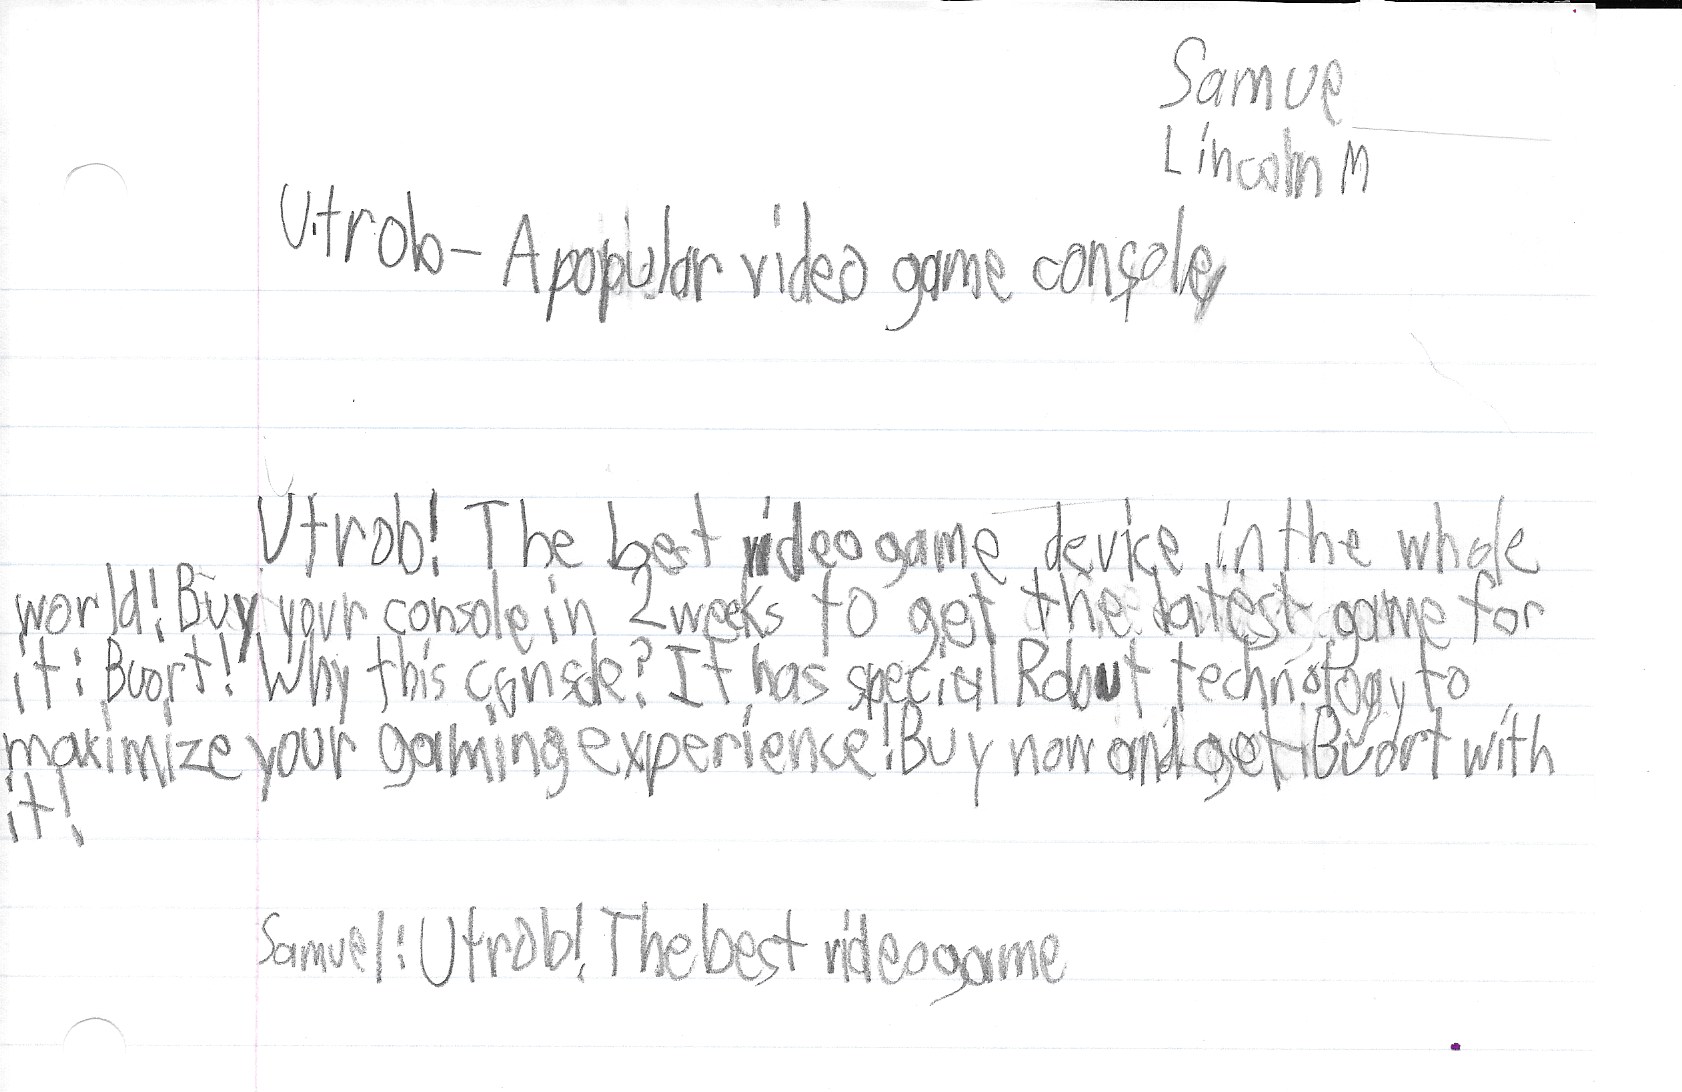 Samue
Lincoln M
Utrob- A popular video game console
Utrob! The best video game device in the whole
world! Buy your console in 2 weeks to get the latest game for
it: Buort! Why this console? It has special Robut technology to
makimize your gaming experience! Buy now and get Buort with
it!
Samuel: Utrob! The best videogame